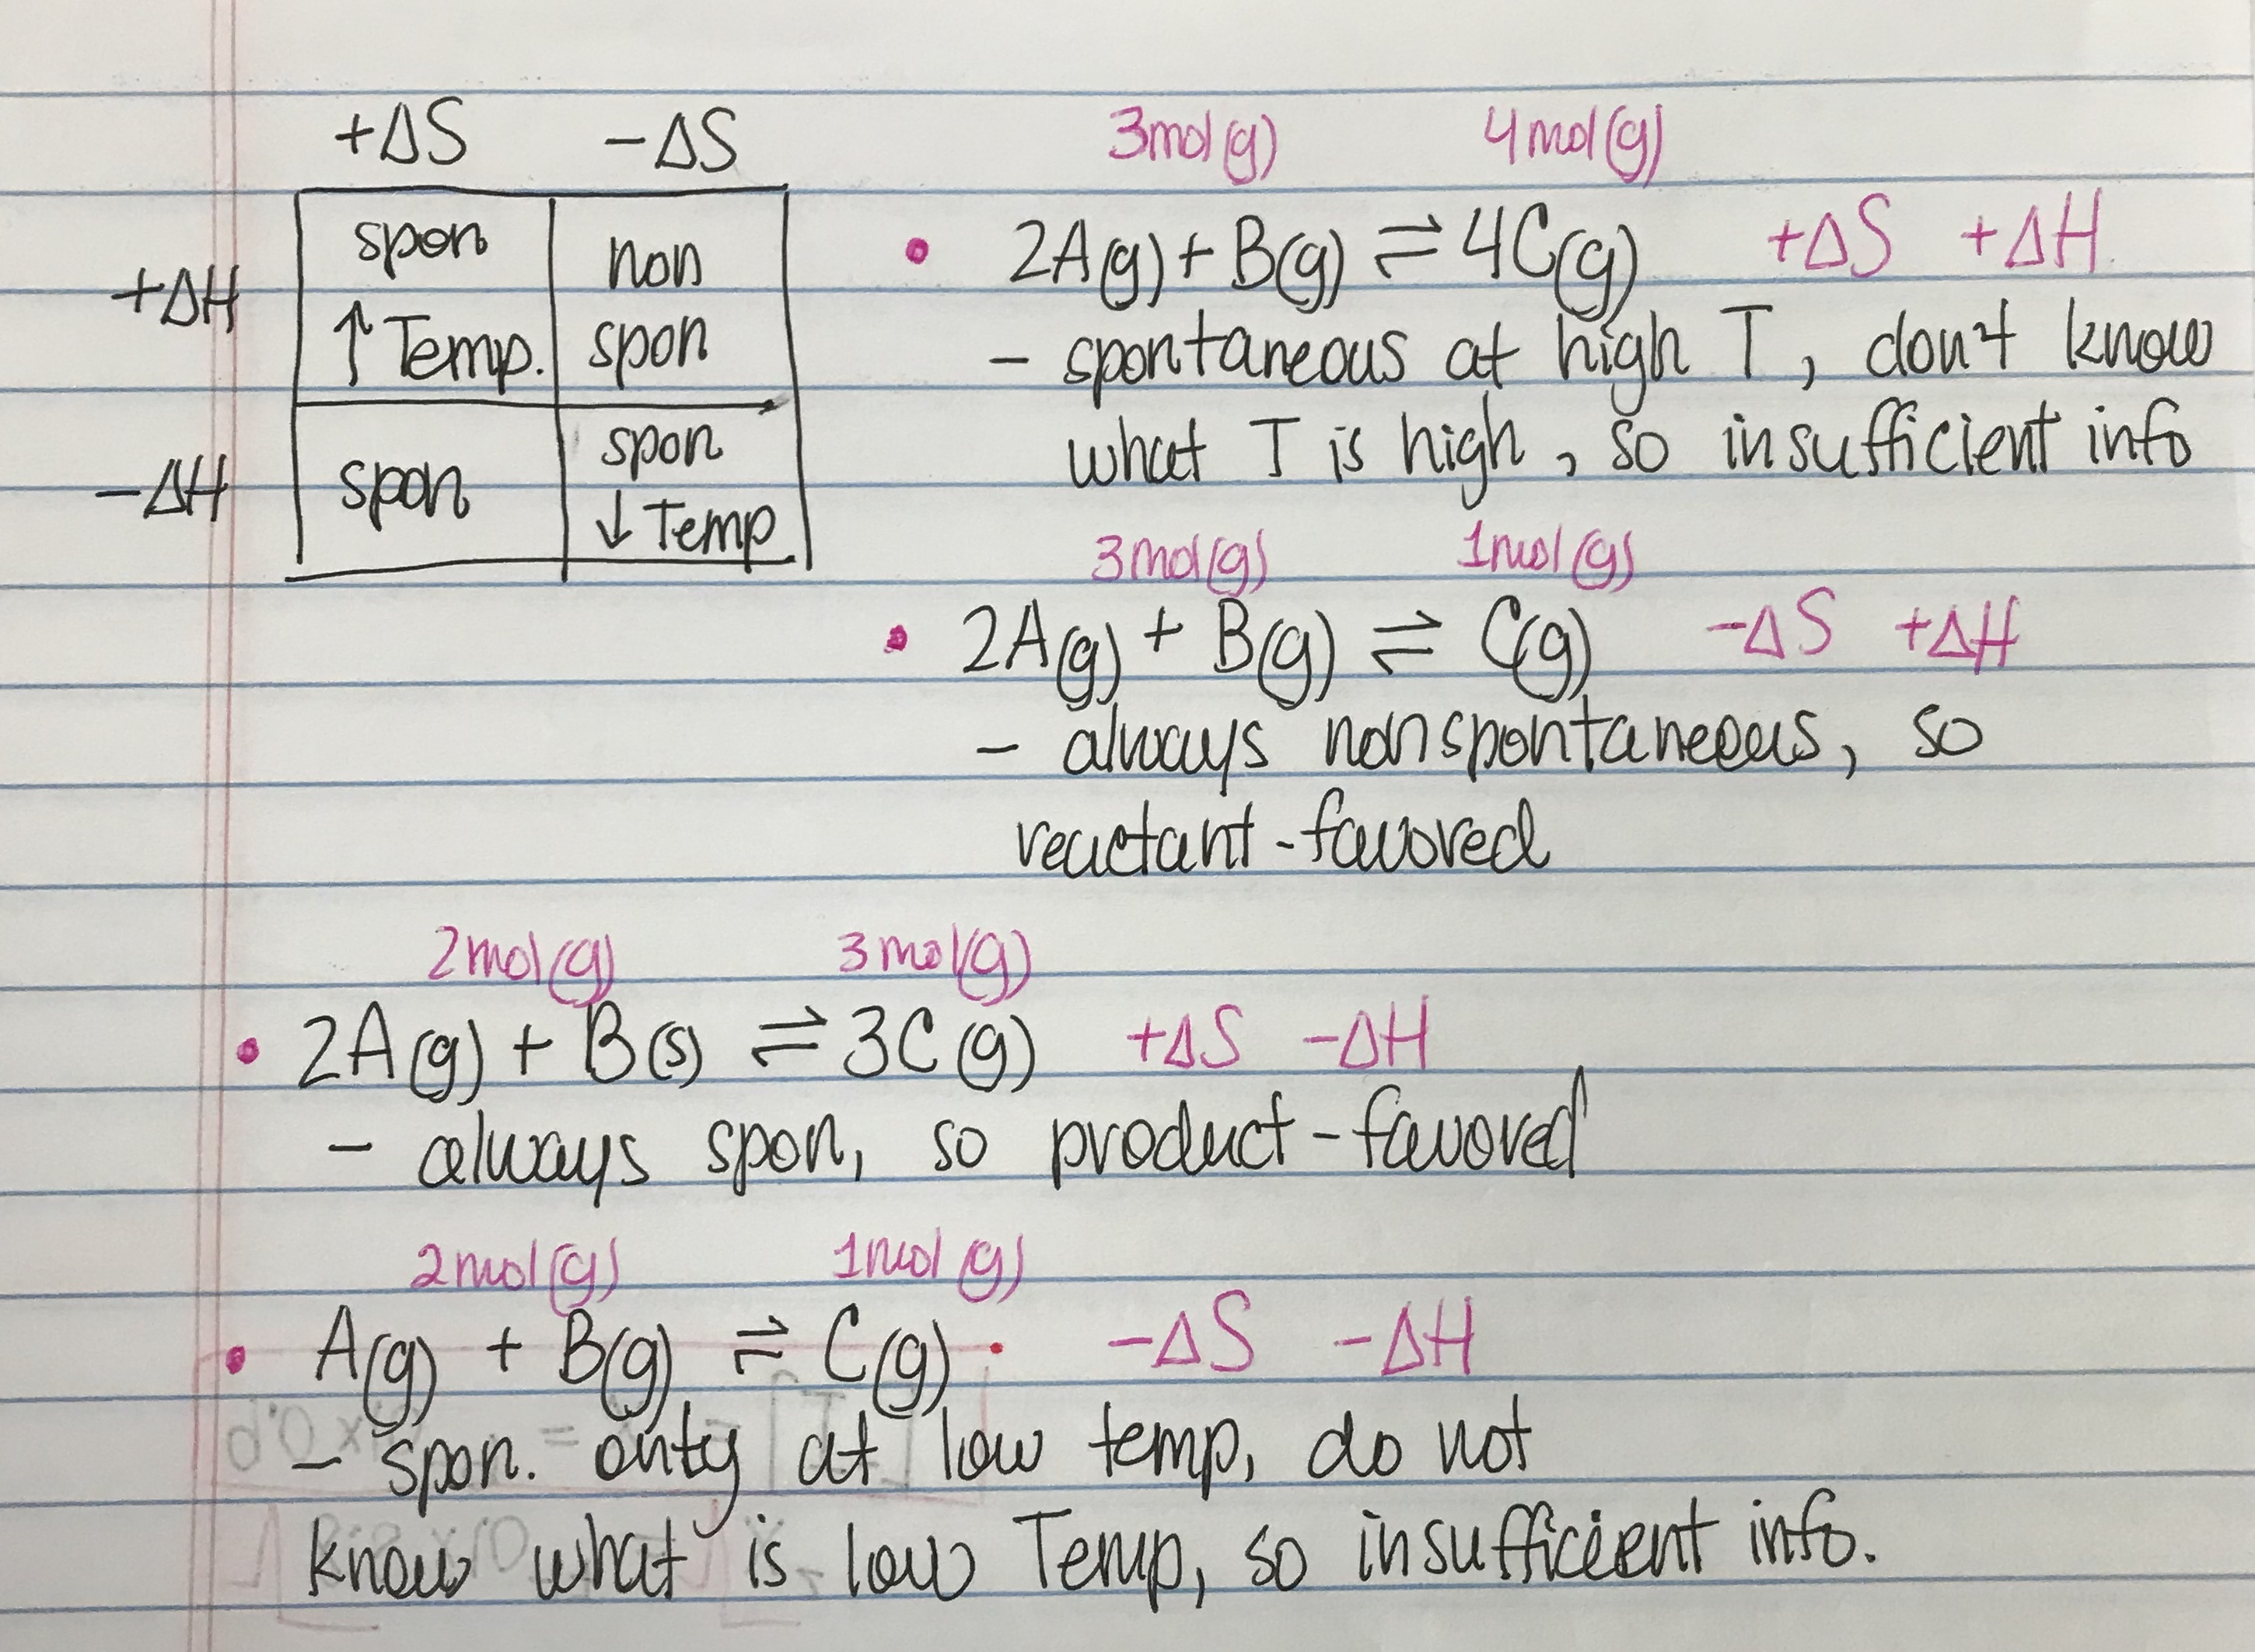 +ΔS -ΔS
+ΔH
spon
↑ Temp.
non
spon
-ΔH
spon
spon
↓ Temp
3mol(g) 4mol(g)
• 2A(g) + B(g) ⇌ 4C(g) +ΔS +ΔH
- spontaneous at high T, don't know
what T is high, so insufficient info
3mol(g) 1mol(g)
• 2A(g) + B(g) ⇌ C(g) -ΔS +ΔH
- always nonspontaneous, so
reactant-favored
2mol(g) 3mol(g)
• 2A(g) + B(s) ⇌ 3C(g) +ΔS -ΔH
- always spon, so product-favored
2mol(g) 1mol(g)
• A(g) + B(g) ⇌ C(g) -ΔS -ΔH
- spon. only at low temp, do not
know what is low Temp, so insufficient info.